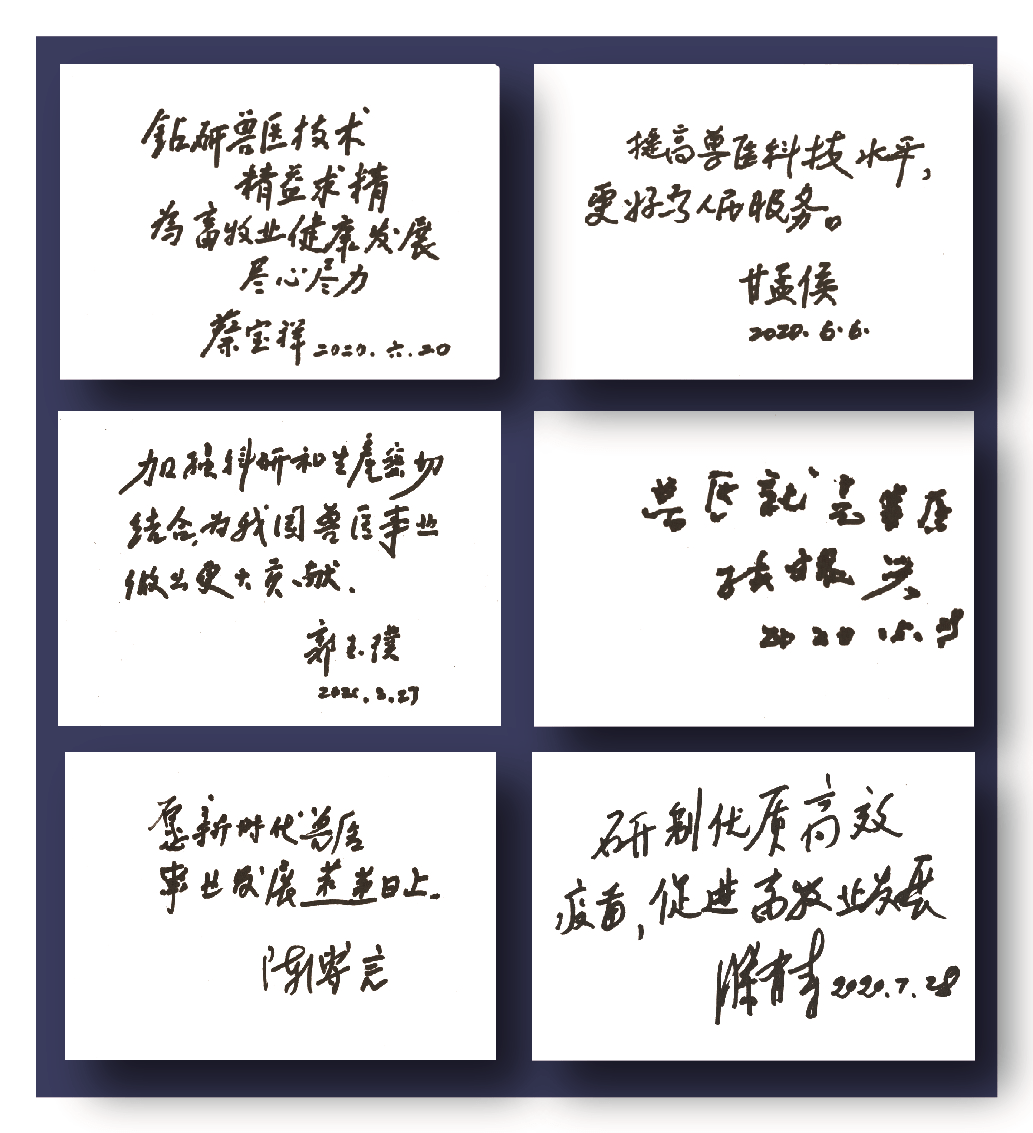 钻研兽医技术
精益求精
为畜牧业健康发展
尽心尽力
蔡宝祥 2020.六.20
提高兽医科技水平，
更好为人民服务。
甘孟侯
2020.6.6.
加强科研和生产密切
结合，为我国兽医事业
做出更大贡献.
郭玉璞
兽医就是兽医
张振兴
2020.5.
愿新时代兽医
事业发展蒸蒸日上。
陈
研制优质高效
疫苗，促进畜牧业发展
2020.7.28